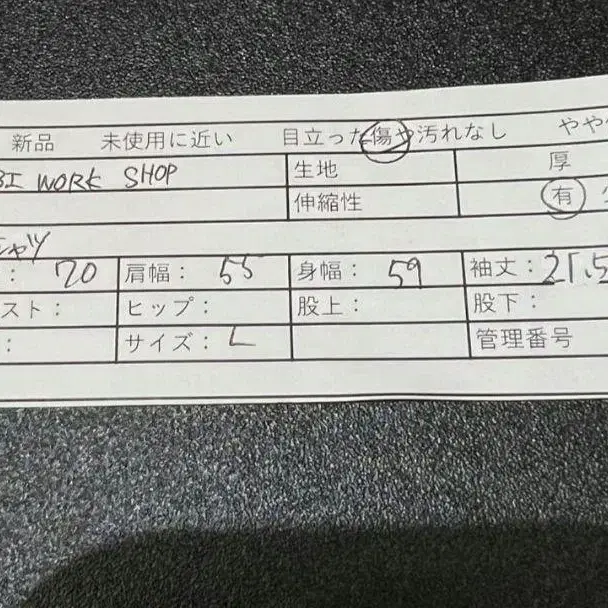 新品 未使用に近い 目立った傷や汚れなし やや
WORK SHOP 生地 厚
伸縮性 有
シャツ
: 70 肩幅: 55 身幅: 59 袖丈: 21.5
スト: ヒップ: 股上: 股下:
: サイズ: L 管理番号